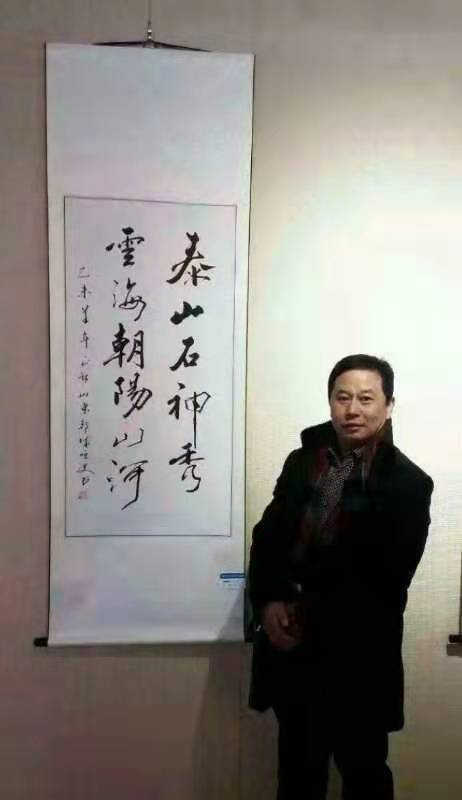 泰山石神秀
雲海朝陽山河
乙未羊年 山東